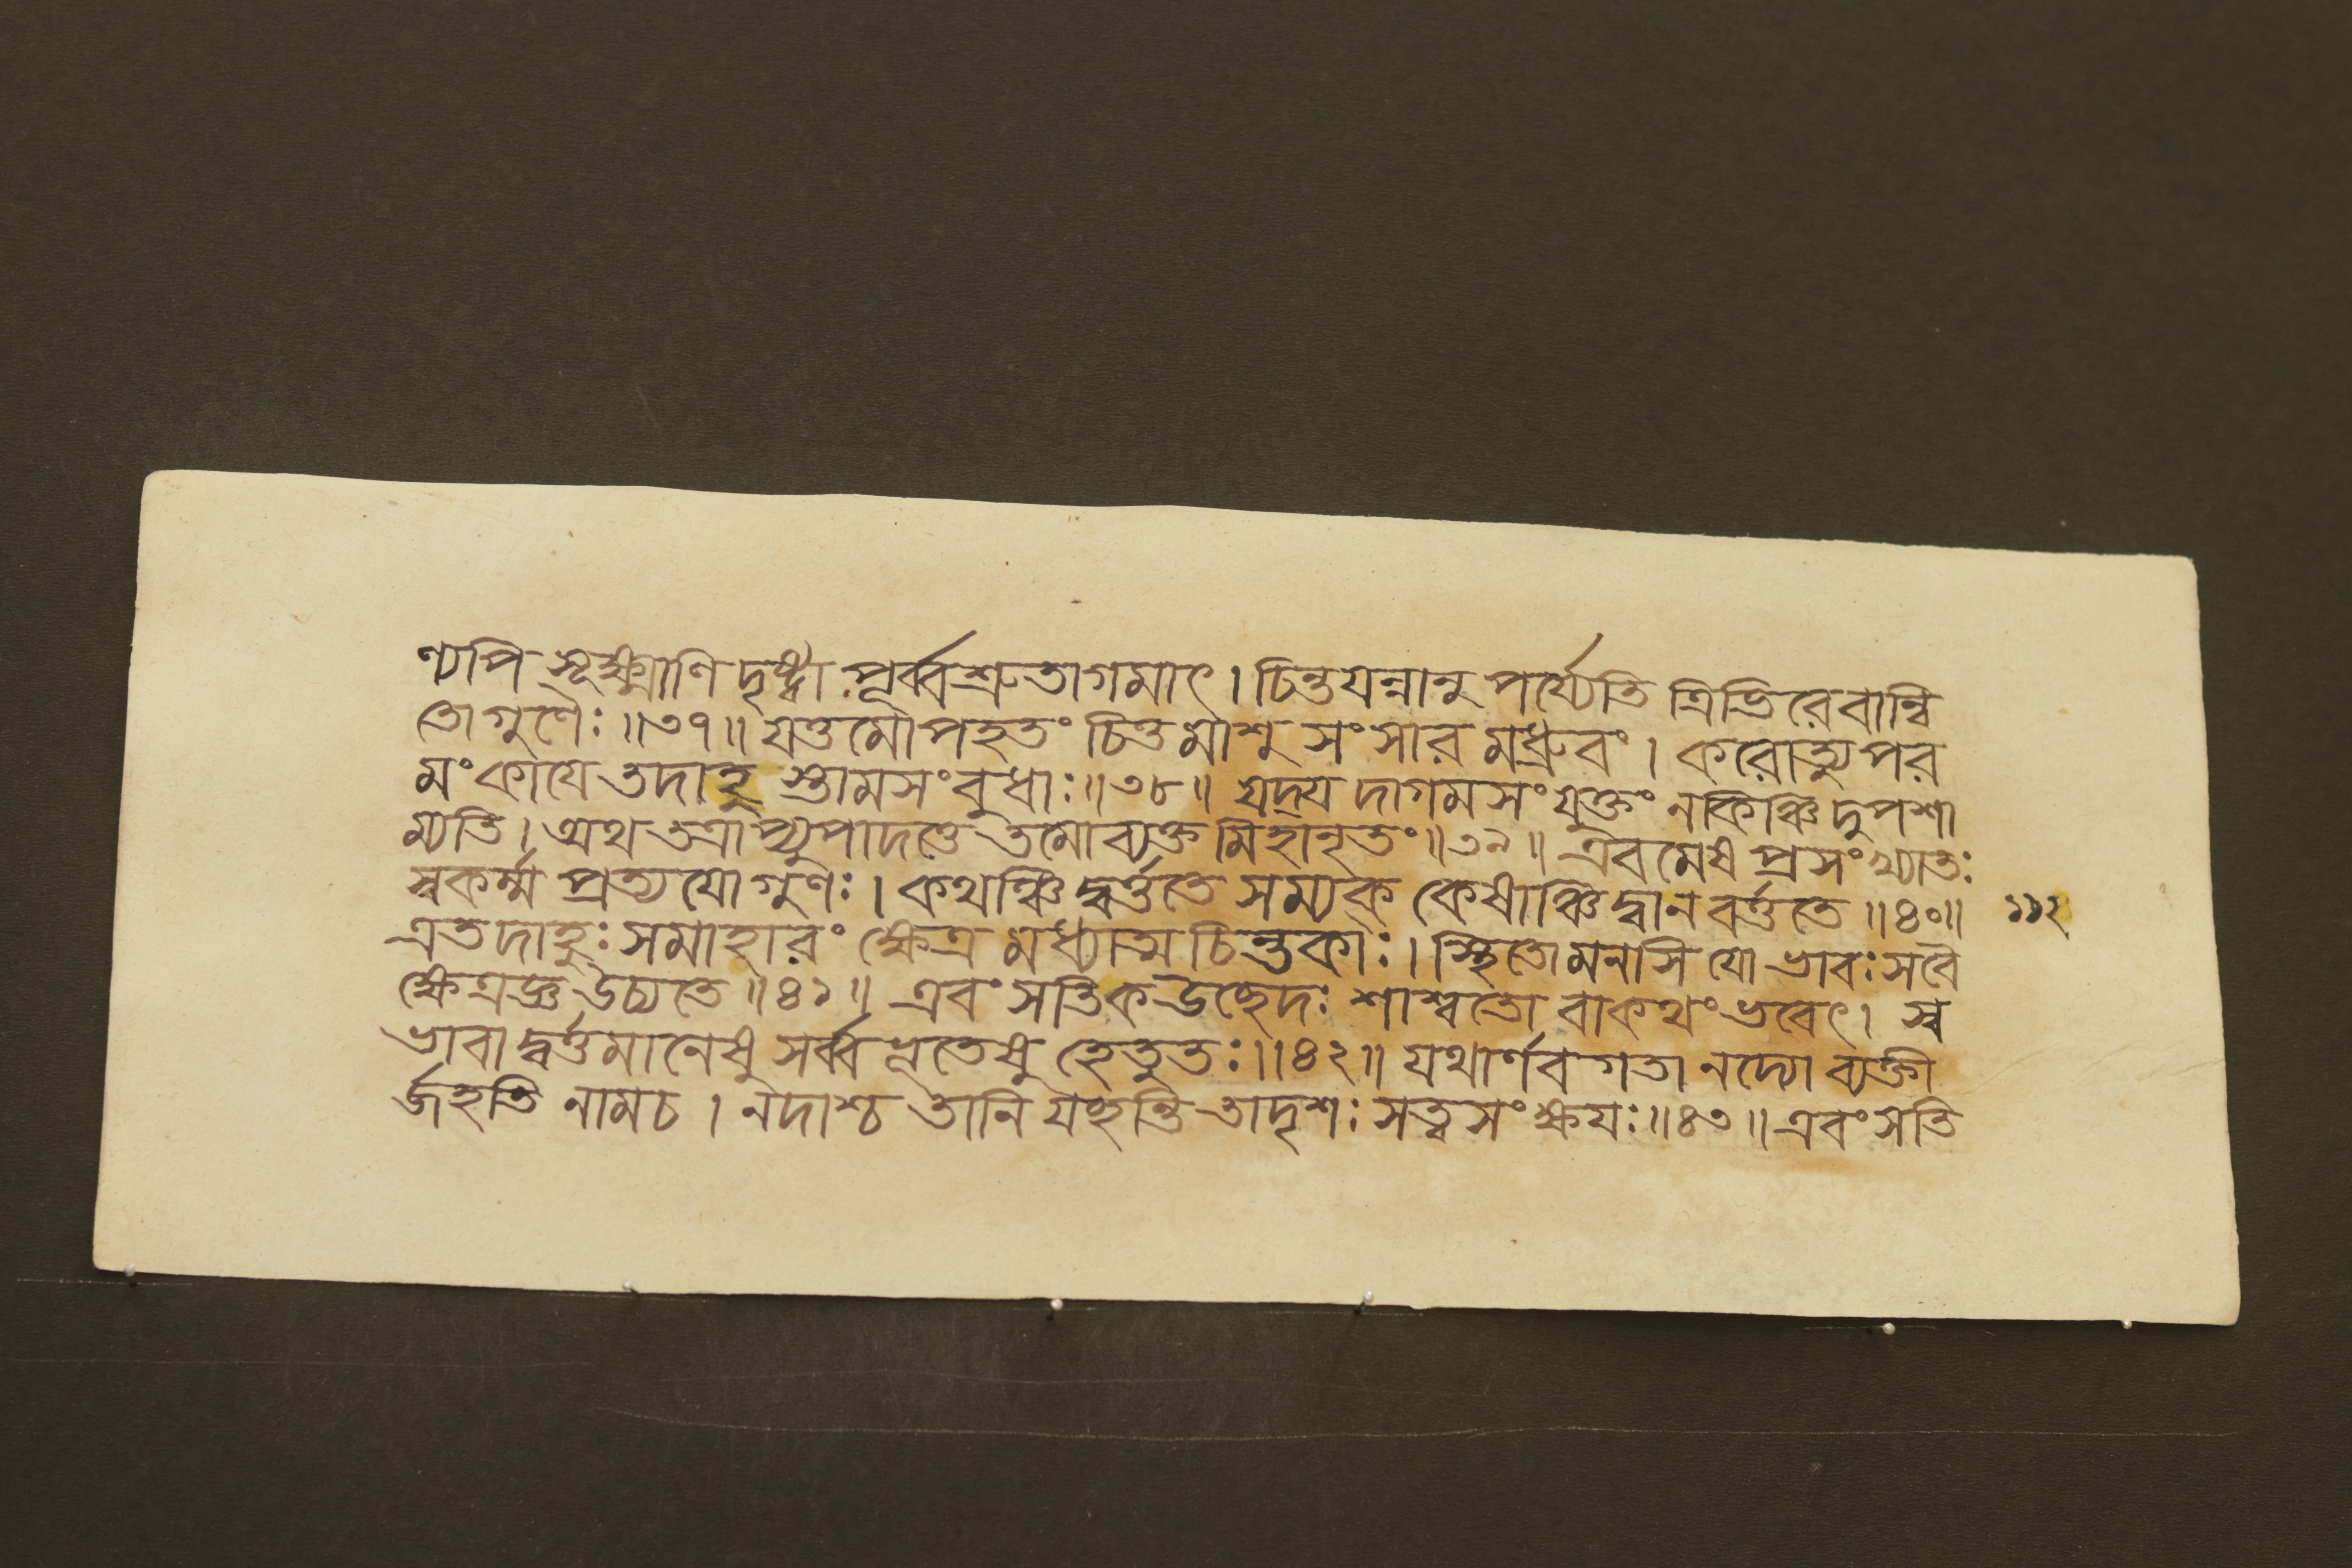 ণ্যপি সূক্ষ্মাণি দৃষ্ট্বা পূর্ব্বশ্রুতাগমাৎ। চিন্তয়ন্নানু পর্য্যেতি ত্রিভিরেবান্বি
তো গুণৈঃ॥৩৭॥ যত্তমোপহতং চিত্তমাশু সংসারমধ্রুবং। করোত্যুপর
মং কাযে তদাহু স্তামসং বুধাঃ॥৩৮॥ যদ্য দাগমসংযুক্তং নকিঞ্চিদুপশা
ম্যতি। অথ তত্রাপ্যুপাদত্তে তমোব্যক্তমিহানৃতং॥৩৯॥ এবমেষ প্রসংখ্যাতঃ
স্বকর্ম্ম প্রত্যযো গুণঃ। কথঞ্চিদ্বর্ত্ততে সম্যক্ কেষাঞ্চিদ্বানবর্ত্ততে॥৪০॥ ১১২
এতদাহুঃ সমাহারং ক্ষেত্রমধ্যাত্ম চিন্তকাঃ। স্থিতোমনসি যো ভাবঃ সবৈ
ক্ষেত্রজ্ঞ উচ্যতে॥৪১॥ এবং সতিক উচ্ছেদঃ শাশ্বতো বাকথং ভবেৎ। স্ব
ভাবাদ্বর্ত্তমানেষু সর্ব্বভূতেষু হেতুতঃ॥৪২॥ যথার্ণবগতা নদ্যো ব্যক্তী
র্জহতি নামচ। নদাশ্চ তানি যচ্ছন্তি তাদৃশঃ সত্ত্বসংক্ষযঃ॥৪৩॥ এবংসতি